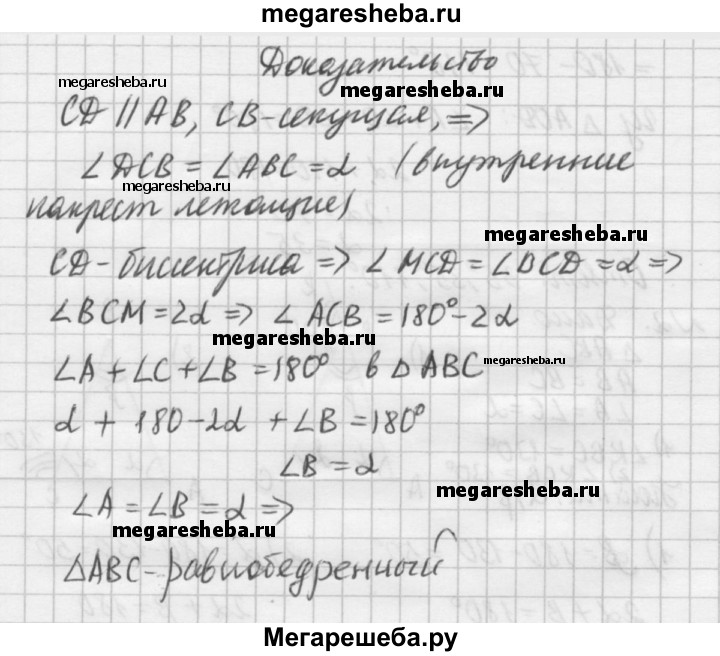 megaresheba.ru
Доказательство
megaresheba.ru
megaresheba.ru
CD || AB, CB-секущая, =>
∠DCB = ∠ABC = α (внутренние
megaresheba.ru
накрест лежащие)
megaresheba.ru
CD-биссектриса => ∠MCD = ∠DCD = α =>
∠BCM = 2α => ∠ACB = 180° - 2α
megaresheba.ru
∠A + ∠C + ∠B = 180° в △ABC
megaresheba.ru
α + 180 - 2α + ∠B = 180°
∠B = α
∠A = ∠B = α =>
megaresheba.ru
megaresheba.ru
△ABC - равнобедренный
Мегарешеба.ру